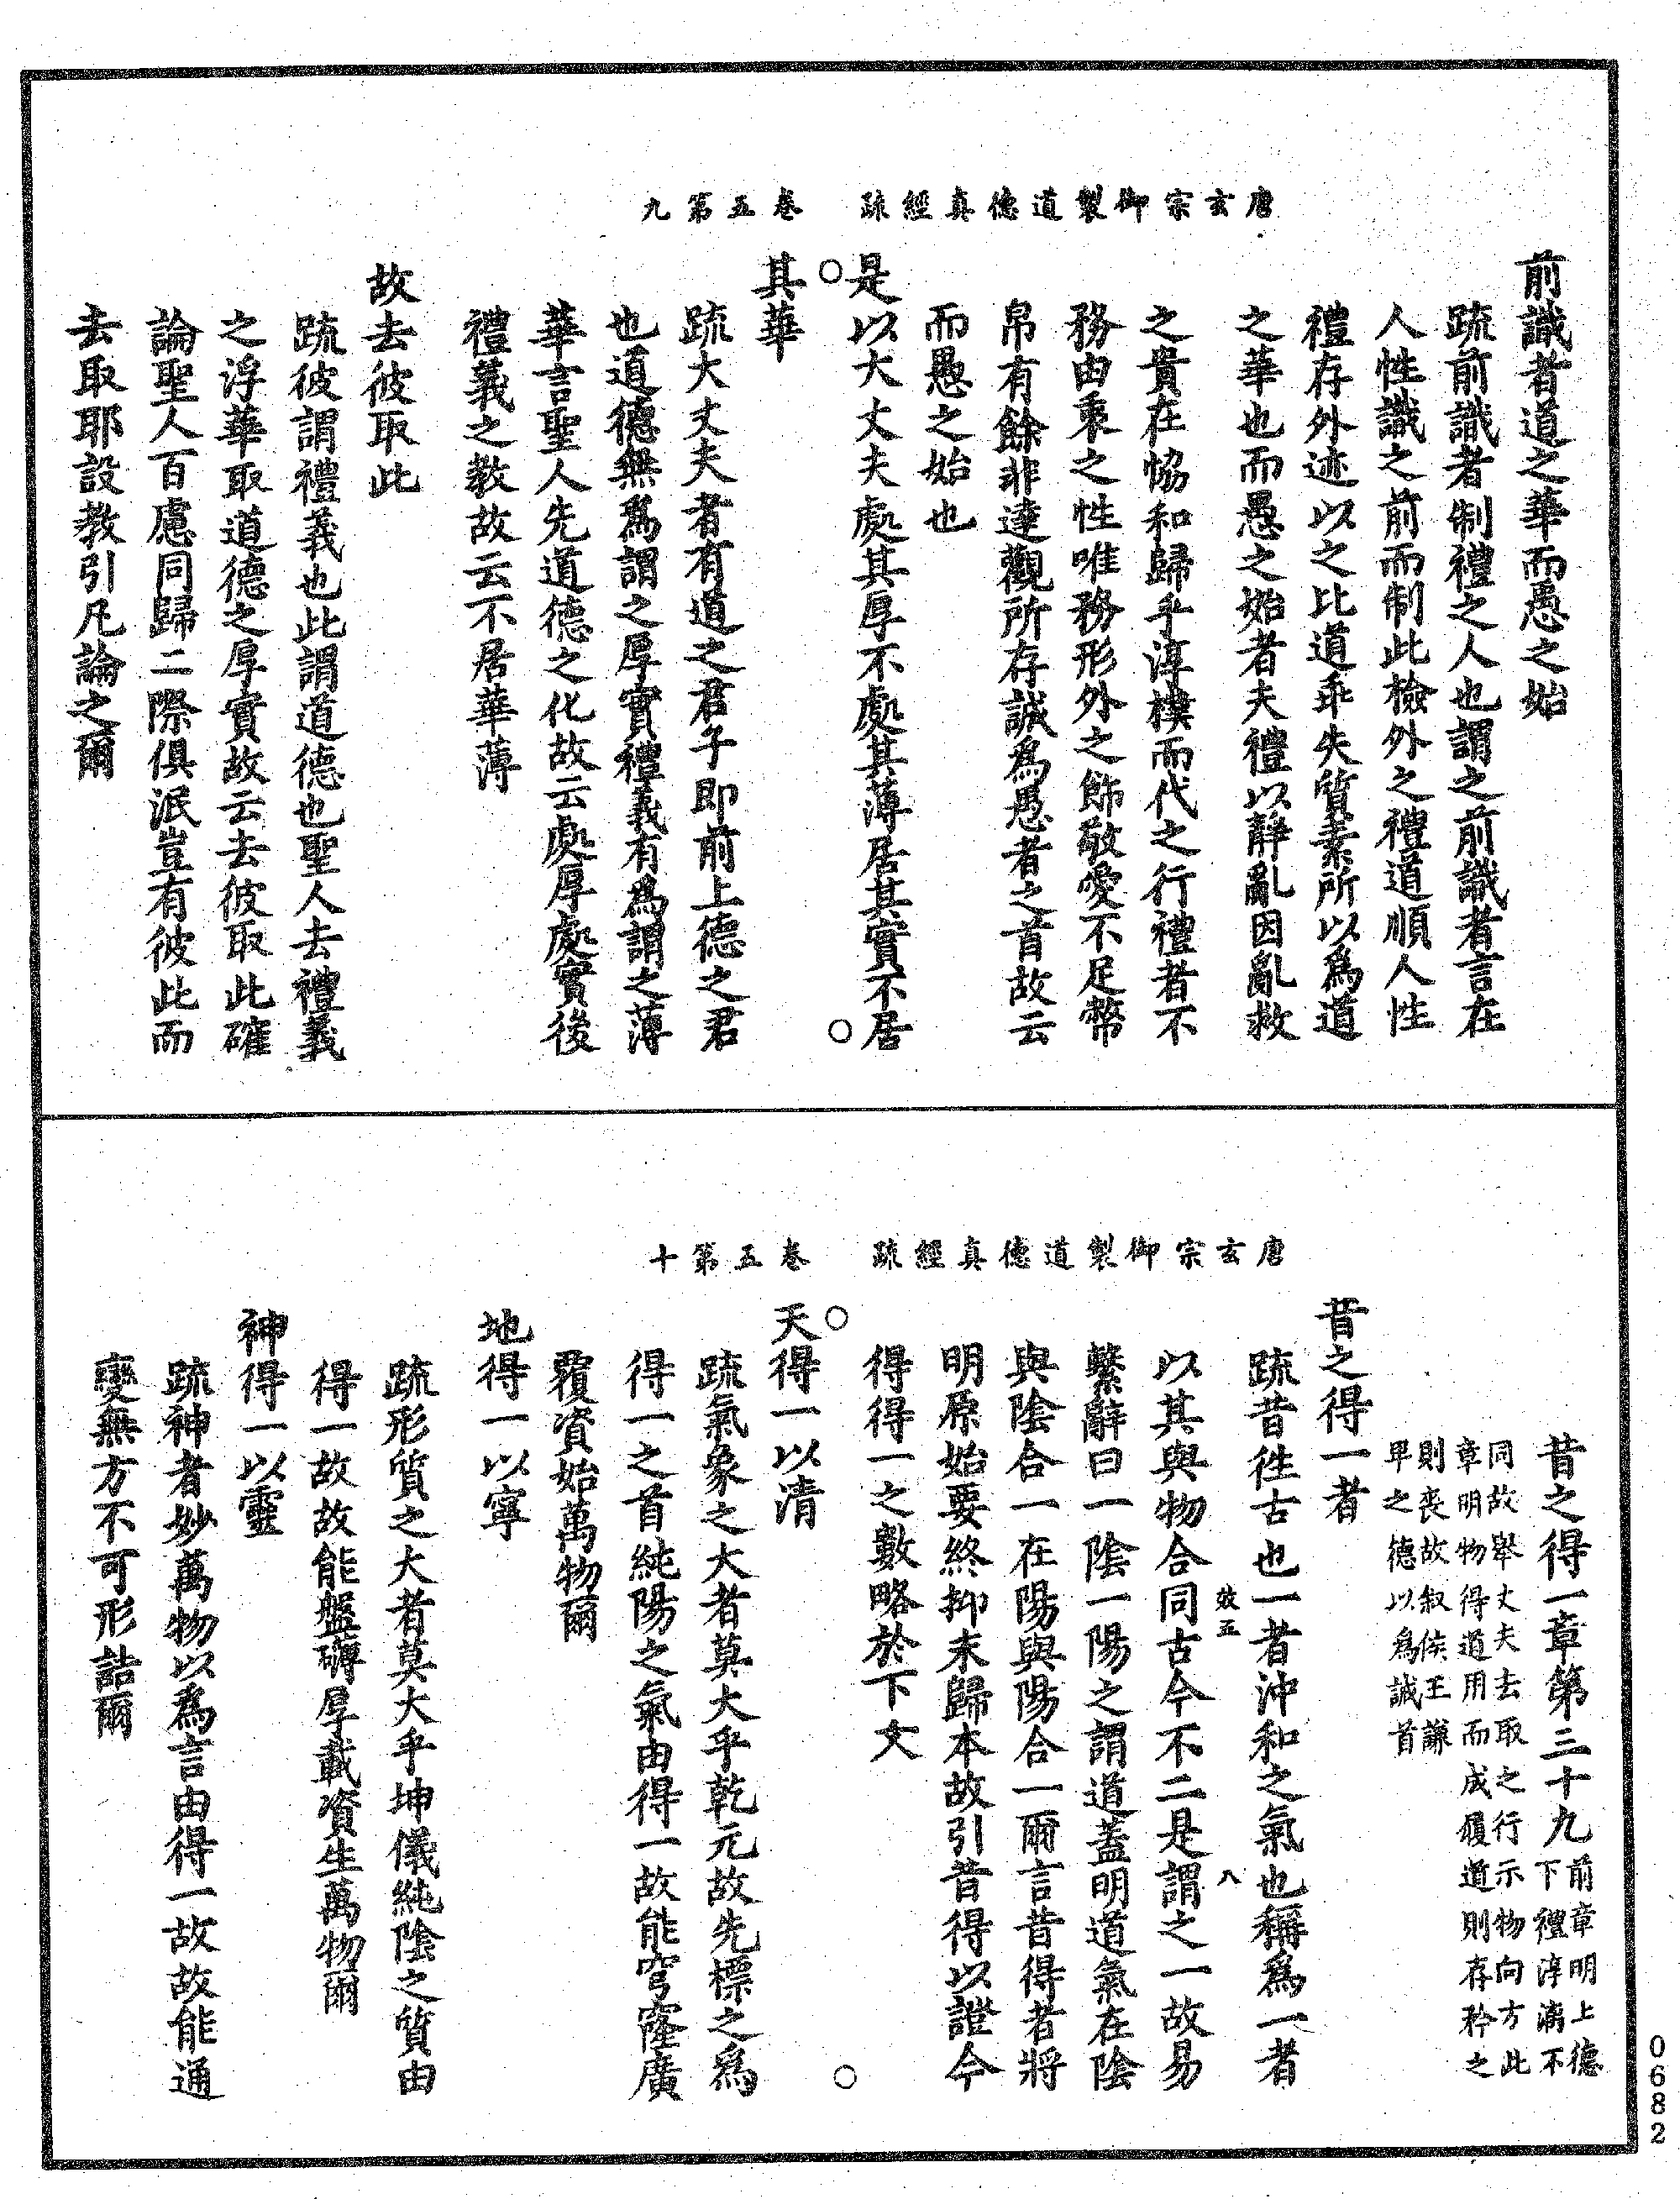 唐玄宗御製道德真經疏　卷五第九
前識者道之華而愚之始
疏前識者制禮之人也謂之前識者言在
人性識之前而制此檢外之禮道順人性
禮存外迹以之比道乖失質素所以為道
之華也而愚之始者夫禮以靜亂因亂救
之貴在恊和歸乎淳樸而代之行禮者不
務由衷之性唯務形外之飾敬愛不足幣
帛有餘非達觀所存誠為愚者之首故云
而愚之始也
是以大丈夫處其厚不處其薄居其實不居
其華
疏大丈夫者有道之君子即前上德之君
也道德無為謂之厚實禮義有為謂之薄
華言聖人先道德之化故云處厚處實後
禮義之教故云不居華薄
故去彼取此
疏彼謂禮義也此謂道德也聖人去禮義
之浮華取道德之厚實故云去彼取此確
論聖人百慮同歸二際俱泯豈有彼此而
去取耶設教引凡論之爾
唐玄宗御製道德真經疏　卷五第十
昔之得一章第三十九前章明上德
下禮淳漓不
同故舉丈夫去取之行示物向方此
章明物得道用而成履道則存矜之
則喪故叙侯王謙
卑之德以為誡首
昔之得一者
疏昔往古也一者沖和之氣也稱為一者
效五　八
以其與物合同古今不二是謂之一故易
繫辭曰一陰一陽之謂道蓋明道氣在陰
與陰合一在陽與陽合一爾言昔得者將
明原始要終抑末歸本故引昔得以證今
得得一之數略於下文
天得一以清
疏氣象之大者莫大乎乾元故先標之為
得一之首純陽之氣由得一故能穹窿廣
覆資始萬物爾
地得一以寧
疏形質之大者莫大乎坤儀純陰之質由
得一故故能盤礴厚載資生萬物爾
神得一以靈
疏神者妙萬物以為言由得一故故能通
變無方不可形詰爾
0682